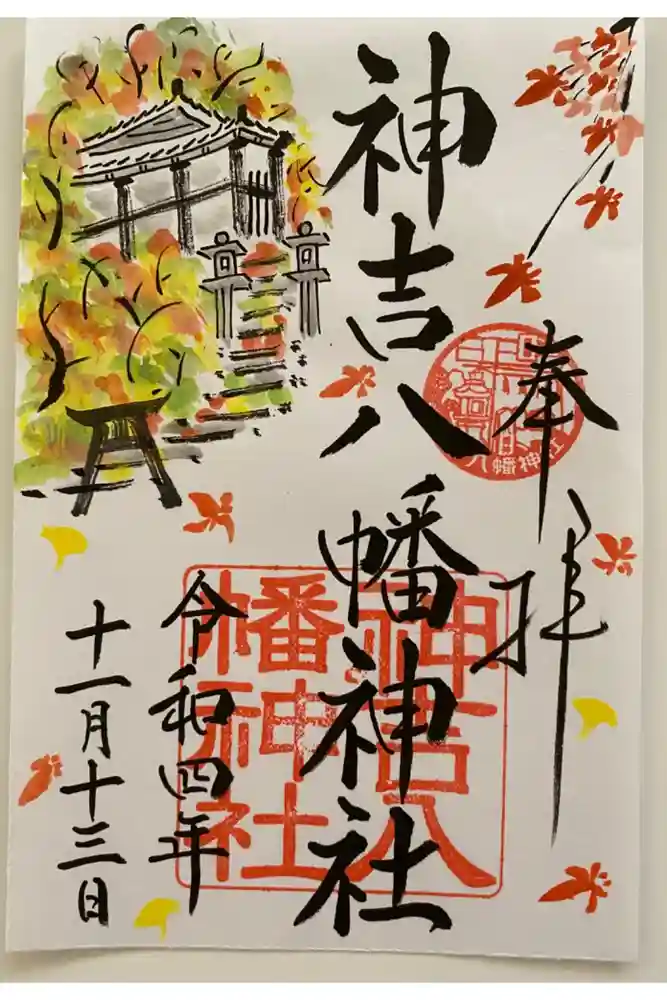 奉拝
神吉八幡神社
八幡神社
神吉八
幡神社
令和四年
十一月十三日